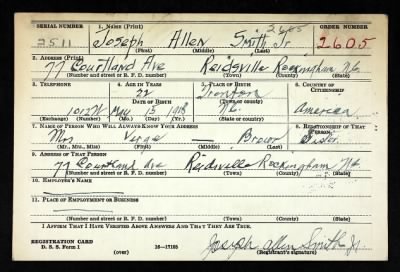 SERIAL NUMBER 1. NAME (Print) ORDER NUMBER
2511 Joseph Allen Smith Jr. 2605
(First) (Middle) (Last)
2. ADDRESS (Print)
77 Courtland Ave Reidsville Rockingham N.C.
(Number and street or R. F. D. number) (Town) (County) (State)
3. TELEPHONE 4. AGE IN YEARS 5. PLACE OF BIRTH 6. COUNTRY OF CITIZENSHIP
22 Trenton
DATE OF BIRTH (Town or county)
1012W May 15 1918 N.C. American
(Exchange) (Number) (Mo.) (Day) (Yr.) (State or country)
7. NAME OF PERSON WHO WILL ALWAYS KNOW YOUR ADDRESS 8. RELATIONSHIP OF THAT PERSON
Mrs Sister
(Mr., Mrs., Miss) (First) (Middle) (Last)
9. ADDRESS OF THAT PERSON
77 Courtland Ave Reidsville Rockingham N.C.
(Number and street or R. F. D. number) (Town) (County) (State)
10. EMPLOYER'S NAME
11. PLACE OF EMPLOYMENT OR BUSINESS
(Number and street or R. F. D. number) (Town) (County) (State)
I AFFIRM THAT I HAVE VERIFIED ABOVE ANSWERS AND THAT THEY ARE TRUE.
REGISTRATION CARD
D. S. S. Form 1 (over) 16—17105 Joseph Allen Smith Jr.
(Registrant's signature)